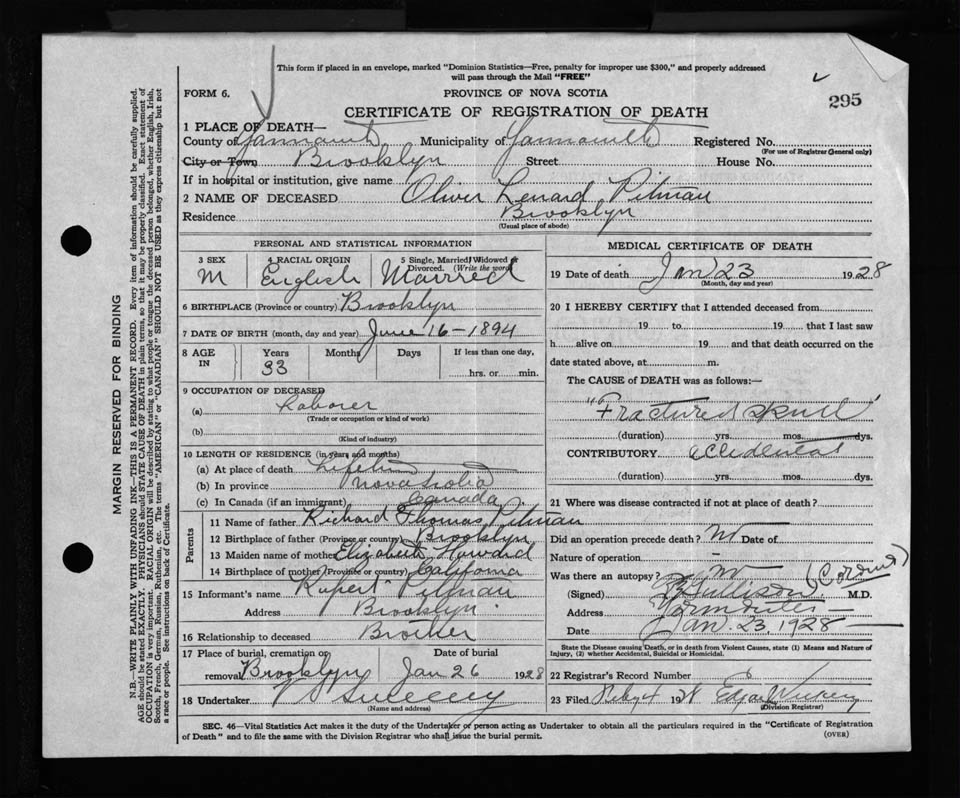 This form if placed in an envelope, marked "Dominion Statistics—Free, penalty for improper use $300," and properly addressed
will pass through the Mail "FREE"
FORM 6.
PROVINCE OF NOVA SCOTIA
295
CERTIFICATE OF REGISTRATION OF DEATH
1 PLACE OF DEATH—
County of Yarmouth Municipality of Yarmouth Registered No.
(For use of Registrar General only)
City or Town Brooklyn Street House No.
If in hospital or institution, give name
2 NAME OF DECEASED Oliver Lenard Pitman
Residence Brooklyn
(Usual place of abode)
PERSONAL AND STATISTICAL INFORMATION
3 SEX 4 RACIAL ORIGIN 5 Single, Married, Widowed or Divorced. (Write the word)
M English Married
6 BIRTHPLACE (Province or country) Brooklyn
7 DATE OF BIRTH (month, day and year) June 16 - 1894
8 AGE IN Years Months Days If less than one day,
33 hrs. or min.
9 OCCUPATION OF DECEASED
(a) Laborer
(Trade or occupation or kind of work)
(b)
(Kind of industry)
10 LENGTH OF RESIDENCE (in years and months)
(a) At place of death Lifetime
(b) In province Nova Scotia
(c) In Canada (if an immigrant) Canada
Parents
11 Name of father Richard Thomas Pitman
12 Birthplace of father (Province or country) Brooklyn
13 Maiden name of mother Elizabeth Howard
14 Birthplace of mother (Province or country) California
15 Informant's name Rupert Pitman
Address Brooklyn
16 Relationship to deceased Brother
17 Place of burial, cremation or removal Date of burial
Brooklyn Jan 26 1928
18 Undertaker V Sweeny
(Name and address)
MEDICAL CERTIFICATE OF DEATH
19 Date of death Jan 23 1928
(Month, day and year)
20 I HEREBY CERTIFY that I attended deceased from
19 to 19 that I last saw
h alive on 19 and that death occurred on the
date stated above, at m.
The CAUSE OF DEATH was as follows:—
"Fractured Skull"
(duration) yrs. mos. dys.
CONTRIBUTORY accidental
(duration) yrs. mos. dys.
21 Where was disease contracted if not at place of death?
Did an operation precede death? No Date of
Nature of operation -
Was there an autopsy? No (Coroner)
(Signed) M.D.
Address Yarmouth
Date Jan. 23, 1928
State the Disease causing Death, or in death from Violent Causes, state (1) Means and Nature of
Injury, (2) whether Accidental, Suicidal or Homicidal.
22 Registrar's Record Number
23 Filed Feby 4 1928 Edgar
(Division Registrar)
SEC. 46—Vital Statistics Act makes it the duty of the Undertaker or person acting as Undertaker to obtain all the particulars required in the "Certificate of Registration
of Death" and to file the same with the Division Registrar who shall issue the burial permit.
(OVER)
MARGIN RESERVED FOR BINDING
N.B.—WRITE PLAINLY WITH UNFADING INK—THIS IS A PERMANENT RECORD. Every item of information should be carefully supplied.
AGE should be stated EXACTLY. PHYSICIANS should STATE CAUSE OF DEATH in plain terms, so that it may be properly classified. Exact statement of
OCCUPATION is very important. RACIAL ORIGIN will be described by stating to what people or tongue the deceased person belonged, whether English, Irish,
Scotch, French, German, Russian, Ruthenian, etc. The terms "AMERICAN" or "CANADIAN" SHOULD NOT BE USED as they express citizenship but not
a race or people. See instructions on back of Certificate.